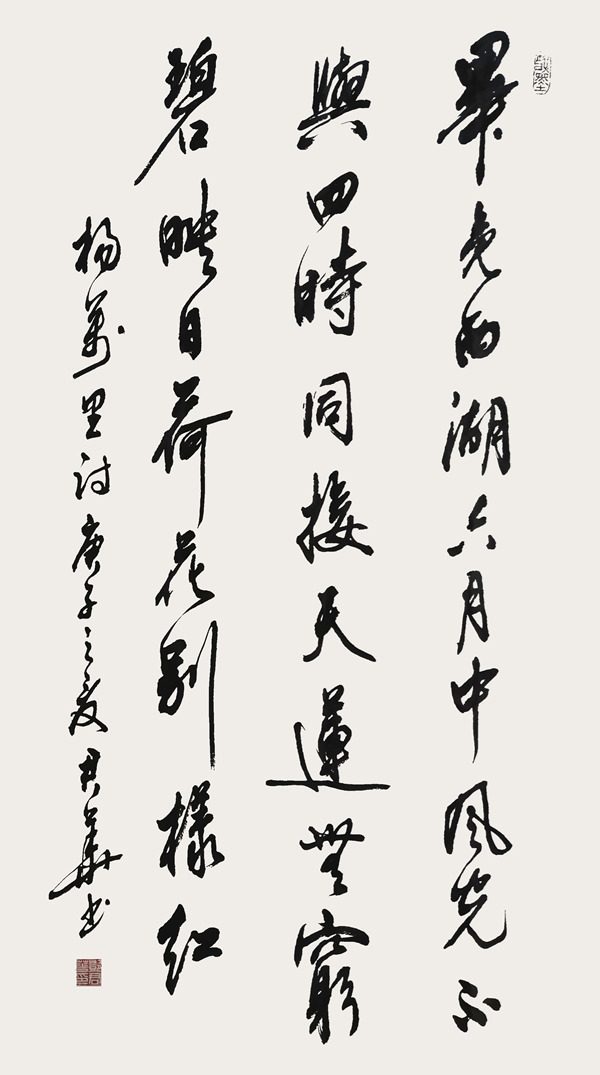 畢竟西湖六月中風光不
與四時同接天蓮無窮
碧映日荷花別樣紅
楊萬里詩庚子之夏君華書